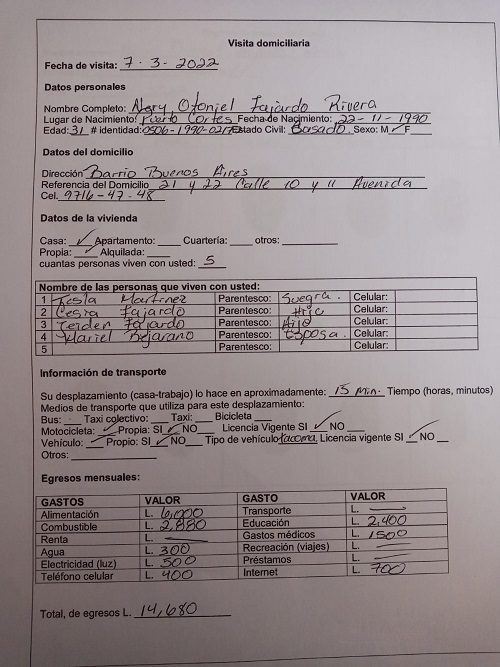 Visita domiciliaria
Fecha de visita: 7-3-2022
Datos personales
Nombre Completo: Nery Otoniel Fajardo Rivera
Lugar de Nacimiento: Puerto Cortes Fecha de Nacimiento: 22-11-1990
Edad: 31 # identidad: 0506-1990- Estado Civil: Casado Sexo: M ✓ F
Datos del domicilio
Dirección Barrio Buenos Aires
Referencia del Domicilio 21 y 22 Calle 10 y 11 Avenida
Cel. 9716-47-48
Datos de la vivienda
Casa: ✓ Apartamento: ____ Cuartería: ____ otros: ____
Propia: ✓ Alquilada: ____
cuantas personas viven con usted: 5
Nombre de las personas que viven con usted:
1 Martinez Parentesco: Suegra. Celular:
2 Fajardo Parentesco: Hija Celular:
3 Fajardo Parentesco: Hijo Celular:
4 Mariel Bejarano Parentesco: Esposa. Celular:
5 Parentesco: Celular:
Información de transporte
Su desplazamiento (casa-trabajo) lo hace en aproximadamente: 15 Min. Tiempo (horas, minutos)
Medios de transporte que utiliza para este desplazamiento:
Bus: ____ Taxi colectivo: ____ Taxi: ____ Bicicleta ____
Motocicleta: ✓ Propia: SI ✓ NO ____ Licencia Vigente SI ✓ NO ____
Vehículo: ✓ Propio: SI ✓ NO ____ Tipo de vehículo tacoma Licencia vigente SI ✓ NO ____
Otros: ____
Egresos mensuales:
GASTOS VALOR GASTO VALOR
Alimentación L. 6,000 Transporte L. —
Combustible L. 2,880 Educación L. 2,400
Renta L. — Gastos médicos L. 1500
Agua L. 300 Recreación (viajes) L. —
Electricidad (luz) L. 500 Préstamos L. —
Teléfono celular L. 400 Internet L. 700
Total, de egresos L. 14,680